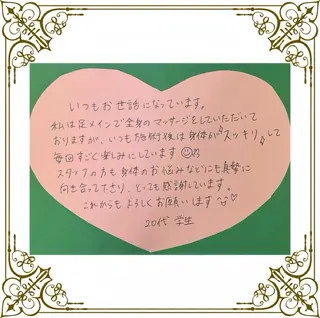 いつもお世話になっています。
私は足メインで全身のマッサージをしていただいて
おりますが、いつも施術後は身体がスッキリして
毎回すごく楽しみにしています
スタッフの方も身体のお悩みなどにも真摯に
向き合って下さり、とっても感謝しています。
これからもよろしくお願いします
20代 学生